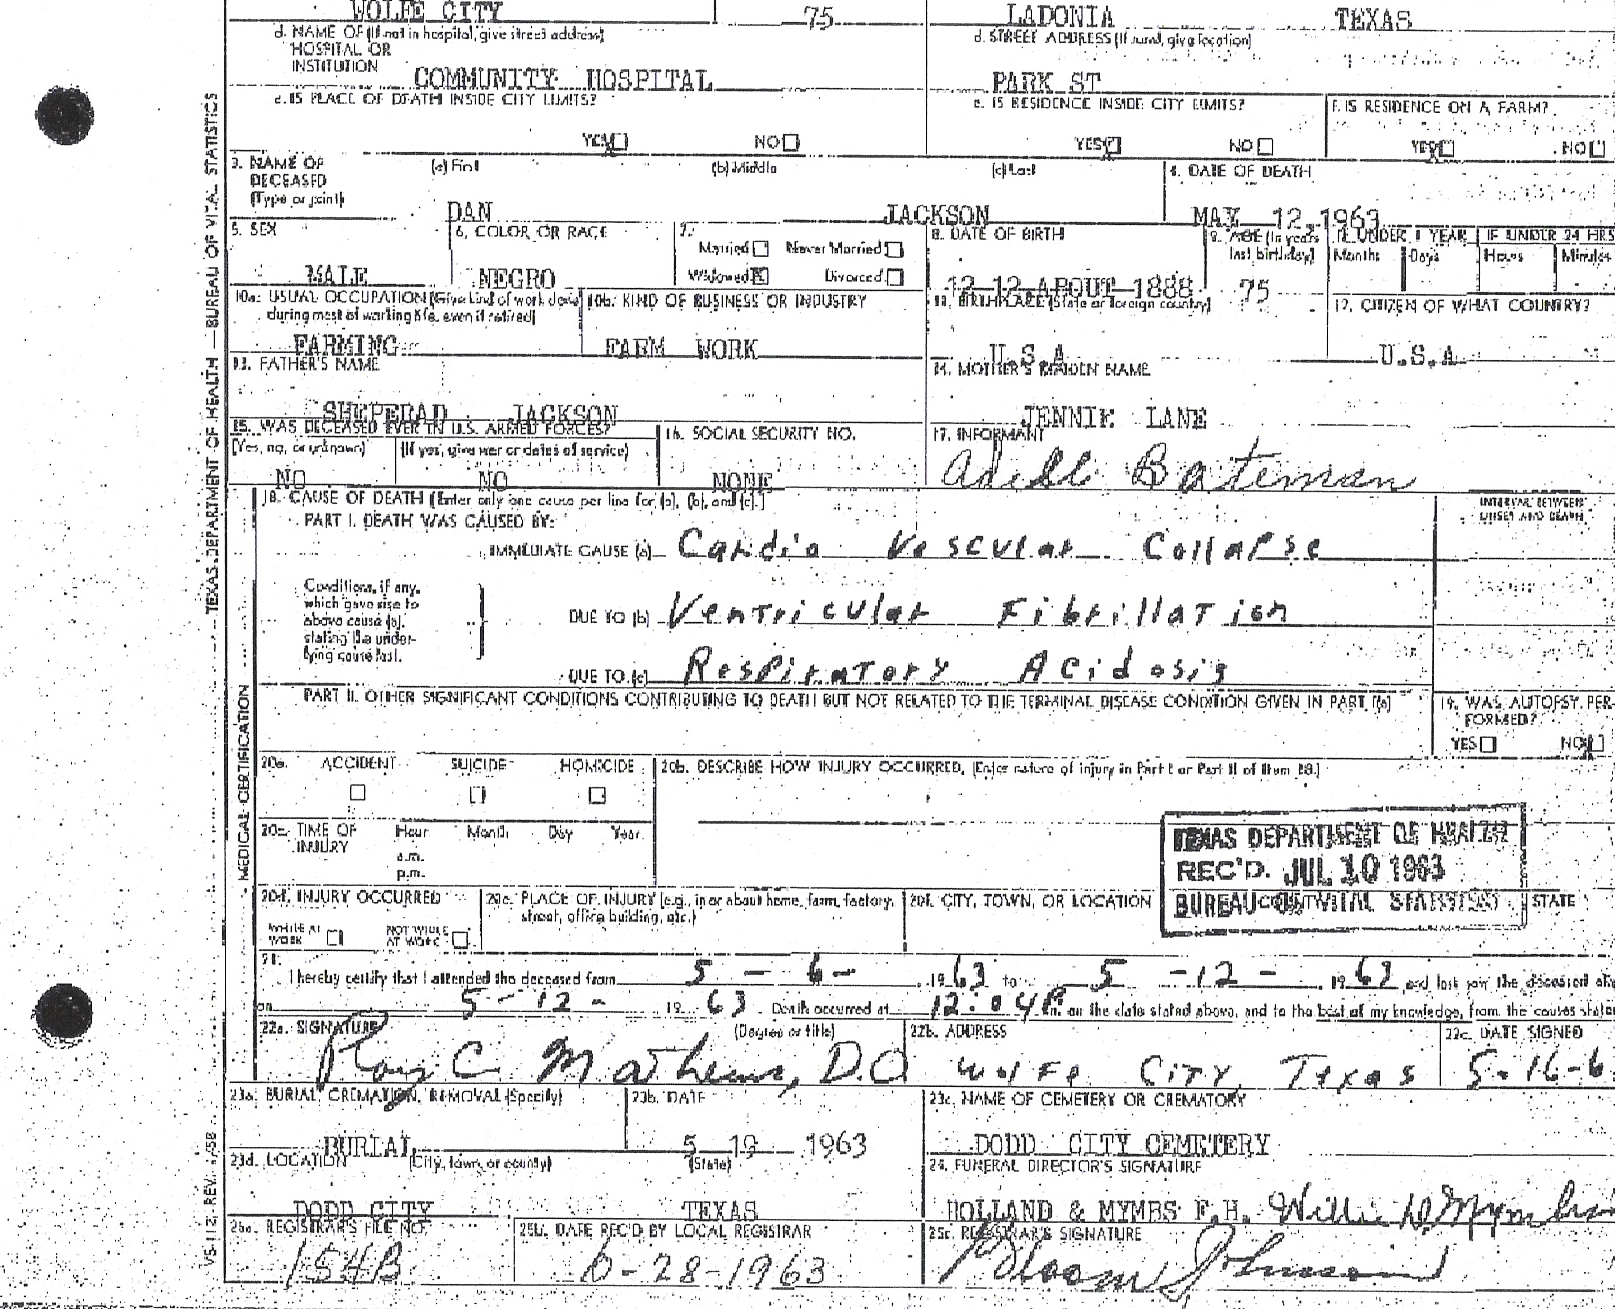 WOLFE CITY 75 LADONIA TEXAS
d. NAME OF (If not in hospital, give street address) HOSPITAL OR INSTITUTION d. STREET ADDRESS (If rural, give location)
COMMUNITY HOSPITAL PARK ST
e. IS PLACE OF DEATH INSIDE CITY LIMITS? e. IS RESIDENCE INSIDE CITY LIMITS? f. IS RESIDENCE ON A FARM?
YES NO YES NO YES NO
3. NAME OF DECEASED (Type or print) (a) First (b) Middle (c) Last 4. DATE OF DEATH
DAN JACKSON MAY 12, 1963
5. SEX 6. COLOR OR RACE 7. Married Never Married Widowed Divorced 8. DATE OF BIRTH 9. AGE (In years last birthday) IF UNDER 1 YEAR IF UNDER 24 HRS
Months Days Hours Minutes
MALE NEGRO 12 12 ABOUT 1888 75
10a. USUAL OCCUPATION (Give kind of work done during most of working life, even if retired) 10b. KIND OF BUSINESS OR INDUSTRY 11. BIRTHPLACE (State or foreign country) 12. CITIZEN OF WHAT COUNTRY?
FARMING FARM WORK U.S.A U.S.A
13. FATHER'S NAME 14. MOTHER'S MAIDEN NAME
SHEPERAD JACKSON JENNIE LANE
15. WAS DECEASED EVER IN U.S. ARMED FORCES? 16. SOCIAL SECURITY NO. 17. INFORMANT
(Yes, no, or unknown) (If yes, give war or dates of service)
NO NO NONE Adell Bateman
18. CAUSE OF DEATH [Enter only one cause per line for (a), (b), and (c).] INTERVAL BETWEEN ONSET AND DEATH
PART I. DEATH WAS CAUSED BY:
IMMEDIATE CAUSE (a) Cardio Vescular Collapse
Conditions, if any, which gave rise to above cause (a), stating the under-lying cause last.
DUE TO (b) Ventricular Fibrillation
DUE TO (c) Respiratory Acidosis
PART II. OTHER SIGNIFICANT CONDITIONS CONTRIBUTING TO DEATH BUT NOT RELATED TO THE TERMINAL DISEASE CONDITION GIVEN IN PART I(a) 19. WAS AUTOPSY PER-FORMED?
YES NO
20a. ACCIDENT SUICIDE HOMICIDE 20b. DESCRIBE HOW INJURY OCCURRED. (Enter nature of injury in Part I or Part II of Item 18.)
20c. TIME OF INJURY Hour Month Day Year
a.m.
p.m.
TEXAS DEPARTMENT OF HEALTH
REC'D. JUL 10 1963
BUREAU OF VITAL STATISTICS
20d. INJURY OCCURRED 20e. PLACE OF INJURY (e.g., in or about home, farm, factory, street, office building, etc.) 20f. CITY, TOWN, OR LOCATION COUNTY STATE
WHILE AT WORK NOT WHILE AT WORK
21. I hereby certify that I attended the deceased from 5 - 6 - 1963 to 5 - 12 - 1963 and last saw the deceased
on 5 - 12 - 1963 Death occurred at 12:04 P.m. on the date stated above, and to the best of my knowledge, from the causes
22a. SIGNATURE (Degree or title) 22b. ADDRESS 22c. DATE SIGNED
Roy C Mathews, D.O. Wolfe City, Texas 5-16-6
23a. BURIAL, CREMATION, REMOVAL (Specify) 23b. DATE 23c. NAME OF CEMETERY OR CREMATORY
BURIAL 5 19 1963 DODD CITY CEMETERY
23d. LOCATION (City, town, or county) (State) 24. FUNERAL DIRECTOR'S SIGNATURE
DODD CITY TEXAS HOLLAND & MYMBS F.H. Willie
25a. REGISTRAR'S FILE NO. 25b. DATE REC'D BY LOCAL REGISTRAR 25c. REGISTRAR'S SIGNATURE
154B 6-28-1963 Bloom Johnson
TEXAS DEPARTMENT OF HEALTH — BUREAU OF VITAL STATISTICS
MEDICAL CERTIFICATION
VS-112, REV. 1/58